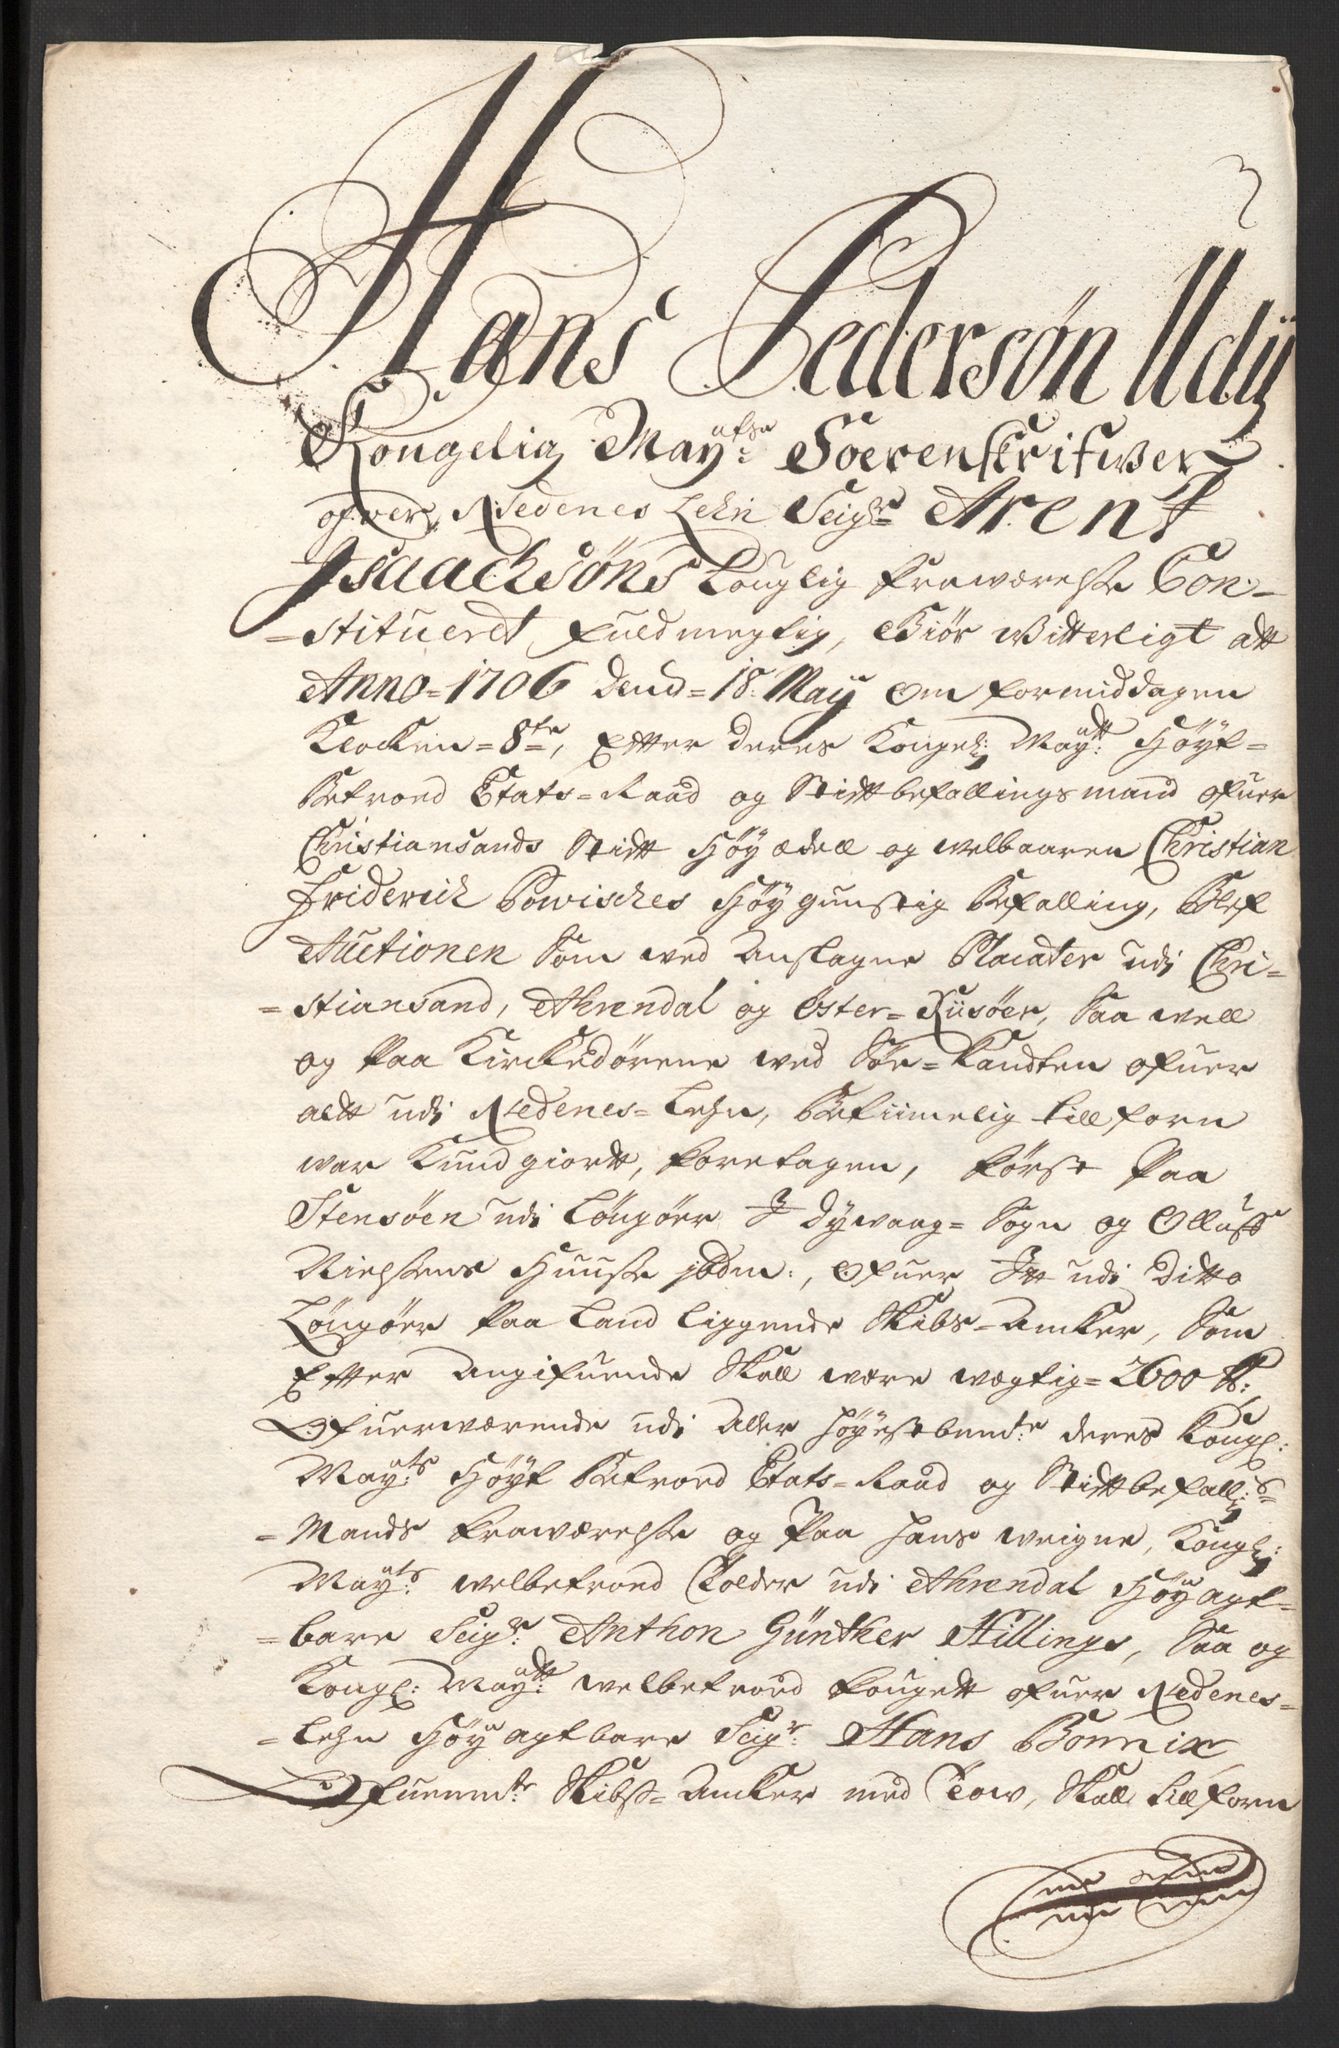 Hans Pedersøn Udÿ
Kongelig Maÿ:ts Soerenskrifwer
ofwer Nedenes Lehn Seig:r Arent
Isaachsøns Louglig Fraværelse Con-
=stitueret fuldmegtig, Giør Witterligt att
Anno=1706 dend=18: Maÿ Om formiddagen
Klocken=8te, Efter deres Kongel: Maÿ:tt Høÿt=
Betroed Etats=Raad og Stiftbefallingsmand ofuer
Christiansands Stift Høÿ ædell og welbaaren Christian
Friderich Powisches Høÿgunstig Befalling, Blef
Auctionen Som ved Anslagne Placater udi Chri=
=stiansand, Ahrendal og Øster=Riisøer, Saa well
og Paa Kirckedørene ved Søe=Kandten ofuer
altt udi Nedenes=Lehn, Betiimelig tillforn
war Kundgiortt, foretagen, først Paa
Stensøen udi Løngøer I Dÿwaag=Sogn og Olluff
Nielsens Huuse ibdm:, Ofuer Itt udi Ditto
Løngøer Paa Land liggende Skibs=Ancker, Som
Efter Angifuende Skall være wægtig=2600 ℔:
Ofuerwærende udi Aller høÿestbem:te deres Kongl:
Maÿ:ts Høÿt Betroed Etats=Raad og Stiftbefall:s=
=Mands fraværelse og Paa hans veigne, Kongl:
Maÿ:ts welbetroed Tolder udi Ahrendal Høÿagt=
=bare Seig:r Anthon Günther Hillings, Saa og
Kongl: Maÿ:tt welbetroed fougett ofuer Nedenes=
=Lehn Høÿagtbare Seig:r Hans Bonnix
Ofuenm:te Skibs=Ancker med Tow, Skall tillforn